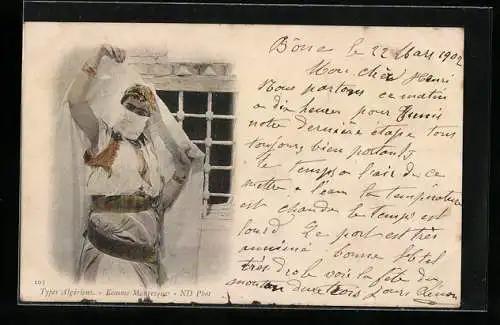 Bône le 22 Mars 1902
Mon cher Henri
Nous partons ce matin
a dix heures pour Tunis
notre dernière étape tous
toujours bien portants
le temps a l'air de ce
mettre a l'eau la température
est chaude le temps est
lourd Le port est très
animé bonne Hôtel
très drole voir la fête du
mouton dure trois jours
103 Types Algériens. - Femme Mauresque - ND Phot